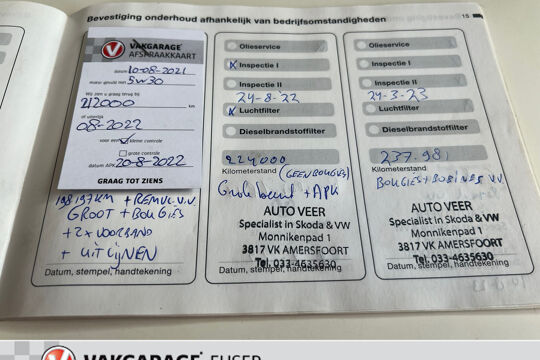 Bevestiging onderhoud afhankelijk van bedrijfsomstandigheden
15
VAKGARAGE
AFSPRAAKKAART
datum 10-08-2021
motor gevuld met 5W30
Wij zien u graag terug bij
212000 km
of uiterlijk
08-2022
voor een kleine controle
grote controle
datum APK 20-8-2022
GRAAG TOT ZIENS
198197KM + REMVL.V.V.
GROOT + BOUGIES
+ 2x VOORBAND
+ UITLIJNEN
Datum, stempel, handtekening
Olieservice
x Inspectie I
Inspectie II
24-8-22
x Luchtfilter
Dieselbrandstoffilter
224000
Kilometerstand (GEEN BOUGIES)
Grote beurt + APK
AUTO VEER
Specialist in Skoda & VW
Monnikenpad 1
3817 VK AMERSFOORT
Tel. 033-4635630
Datum, stempel, handtekening
Olieservice
Inspectie I
Inspectie II
24-3-23
Luchtfilter
Dieselbrandstoffilter
237.981
Kilometerstand
BOUGIES + BOBINES V.V.
AUTO VEER
Specialist in Skoda & VW
Monnikenpad 1
3817 VK AMERSFOORT
Tel. 033-4635630
Datum, stempel, handtekening
VAKGARAGE